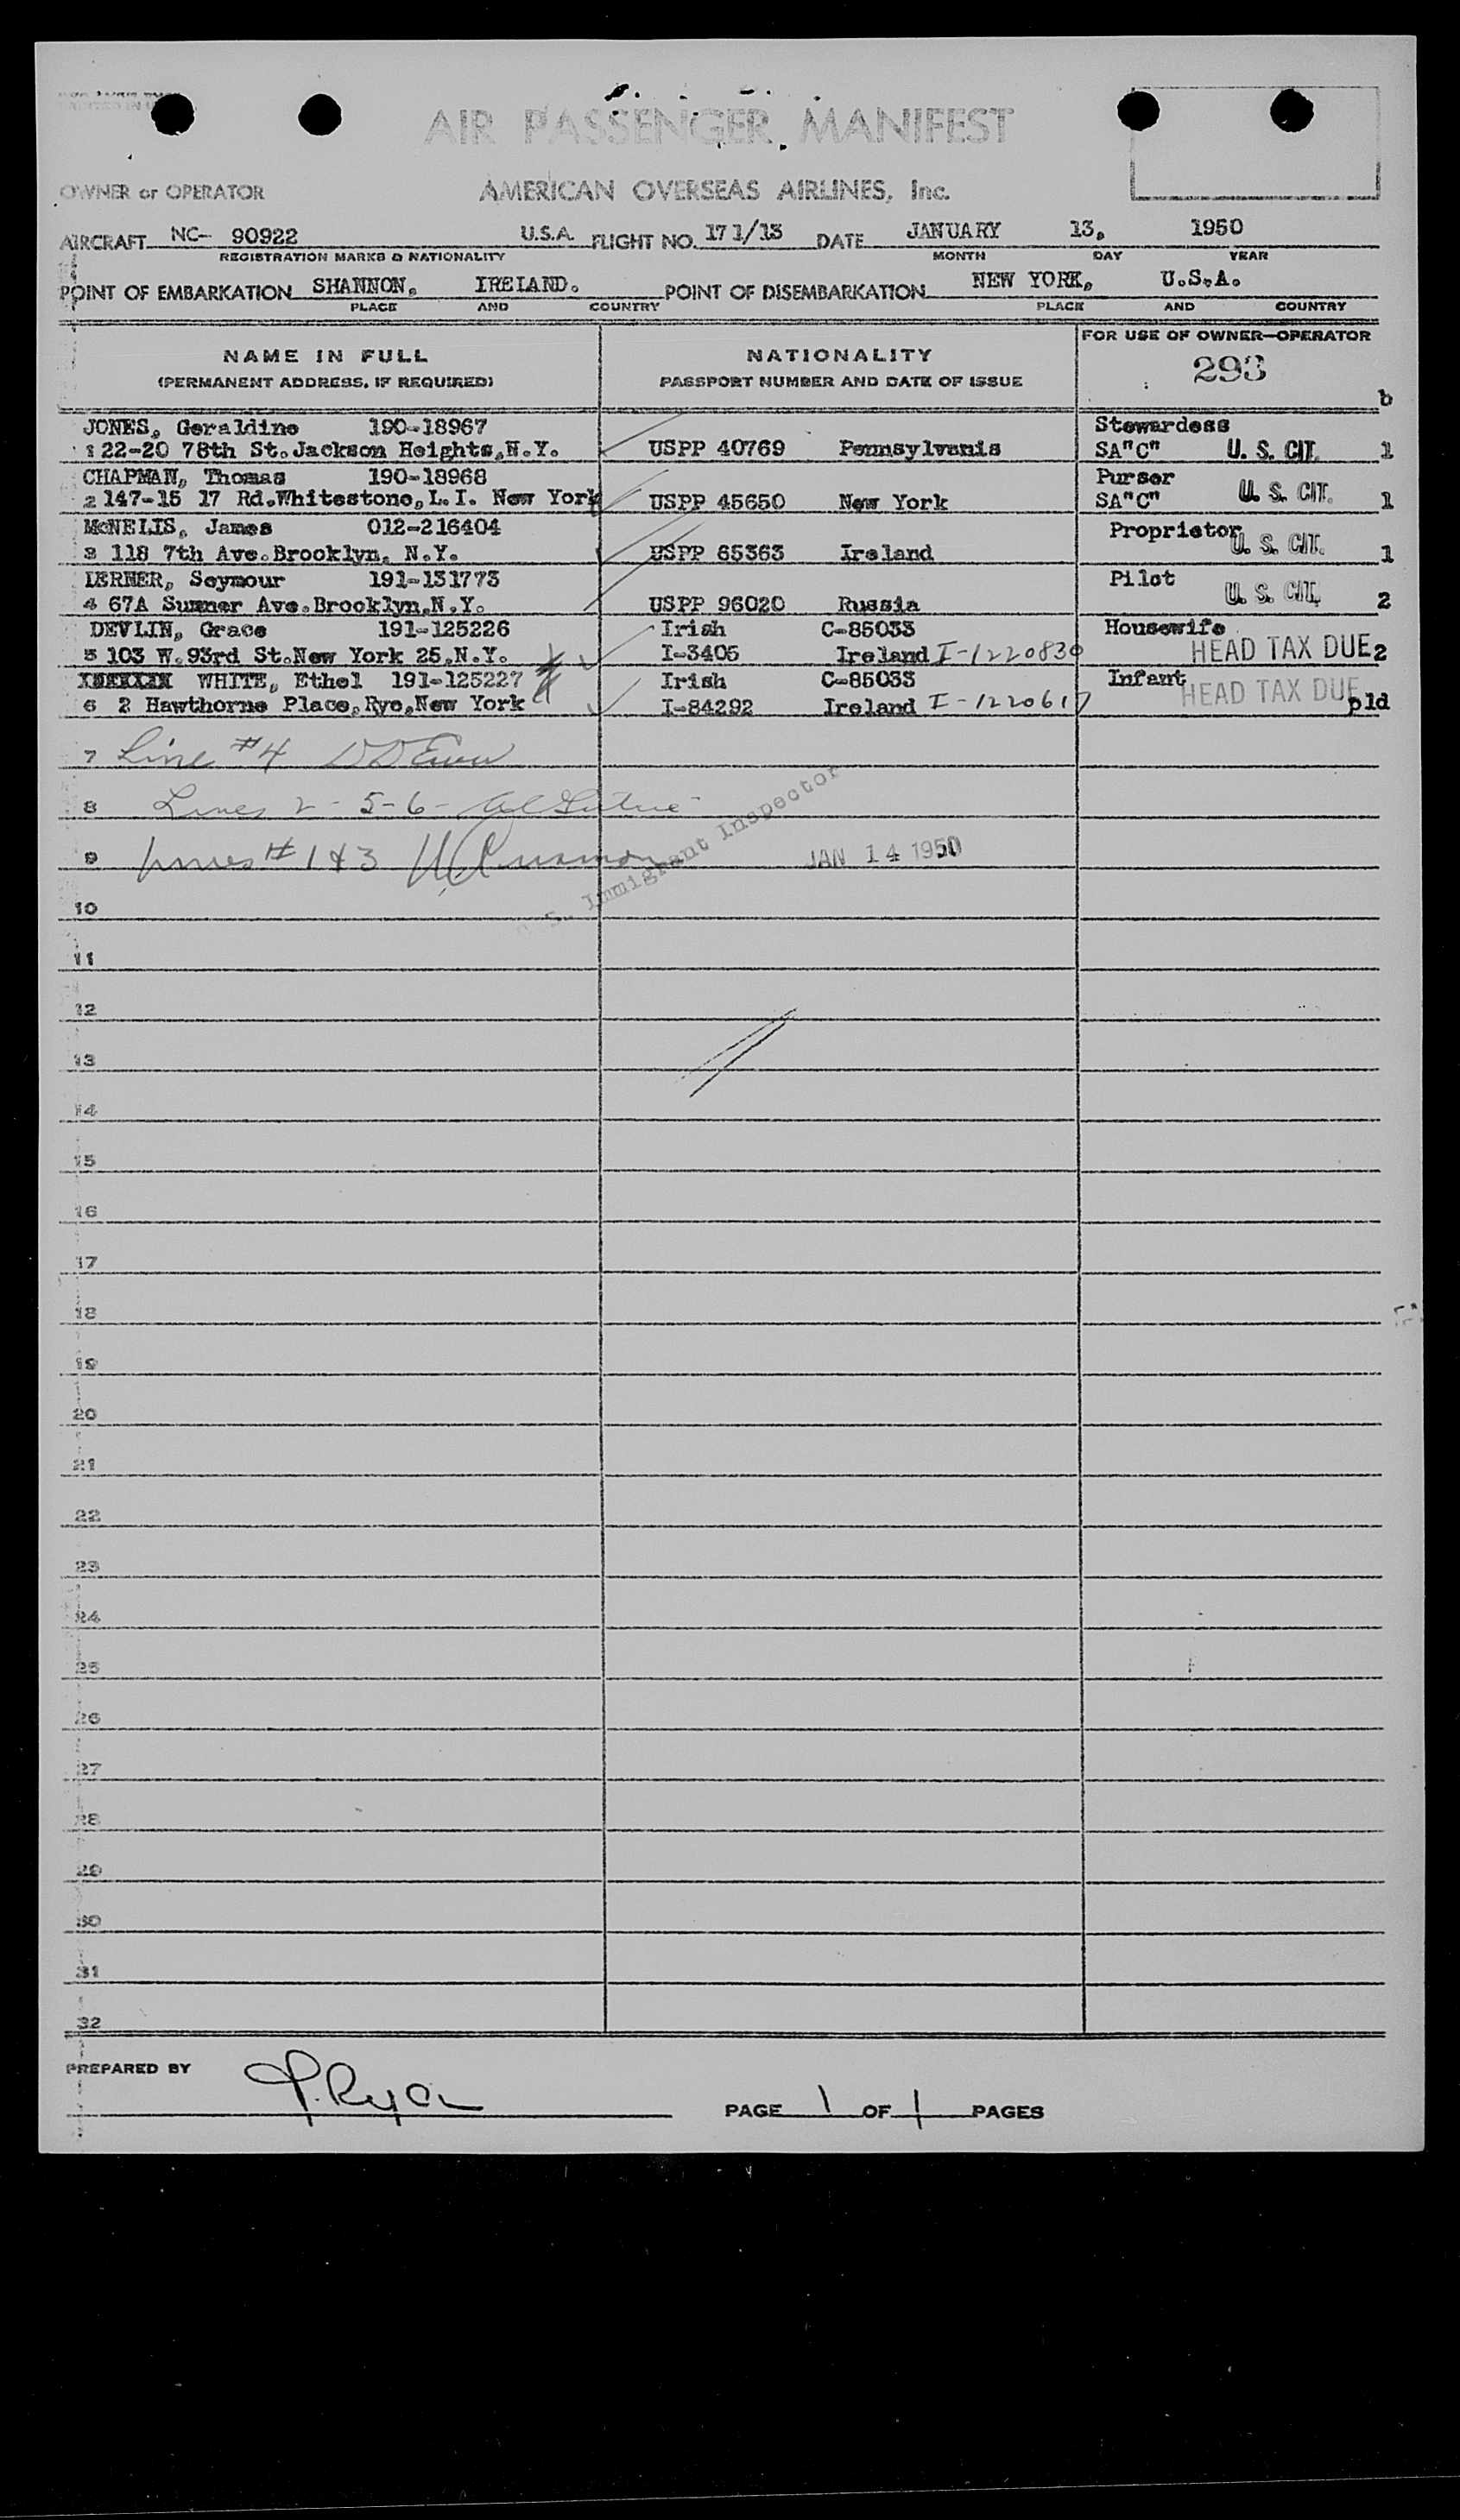 AIR PASSENGER MANIFEST
OWNER or OPERATOR AMERICAN OVERSEAS AIRLINES, Inc.
AIRCRAFT NC- 90922 U.S.A. FLIGHT NO. 171/13 DATE JANUARY 13, 1950
REGISTRATION MARKS & NATIONALITY MONTH DAY YEAR
POINT OF EMBARKATION SHANNON, IRELAND. POINT OF DISEMBARKATION NEW YORK, U.S.A.
PLACE AND COUNTRY PLACE AND COUNTRY
NAME IN FULL NATIONALITY FOR USE OF OWNER—OPERATOR
(PERMANENT ADDRESS, IF REQUIRED) PASSPORT NUMBER AND DATE OF ISSUE 293
b
JONES, Geraldine 190-18967 Stewardess
1 22-20 78th St.Jackson Heights,N.Y. USPP 40769 Pennsylvania SA"C" U. S. CIT. 1
CHAPMAN, Thomas 190-18968 Purser
2 147-15 17 Rd.Whitestone,L.I. New York USPP 45650 New York SA"C" U. S. CIT. 1
McNELIS, James 012-216404 Proprietor
3 118 7th Ave.Brooklyn, N.Y. USPP 65363 Ireland U. S. CIT. 1
LERNER, Seymour 191-131773 Pilot
4 67A Sumner Ave.Brooklyn,N.Y. USPP 96020 Russia U. S. CIT. 2
DEVLIN, Grace 191-125226 Irish C-85033 Housewife
5 103 W.93rd St.New York 25,N.Y. I-3405 Ireland I-1220830 HEAD TAX DUE 2
WHITE, Ethel 191-125227 Irish C-85033 Infant
6 2 Hawthorne Place,Rye,New York I-84292 Ireland I-1220617 HEAD TAX DUE pld
7 Line #4
8 Lines 2-5-6-
9 Lines #1&3 JAN 14 1950
S. Immigrant Inspector
10
11
12
13
14
15
16
17
18
19
20
21
22
23
24
25
26
27
28
29
30
31
32
PREPARED BY P.Ryan
PAGE 1 OF 1 PAGES